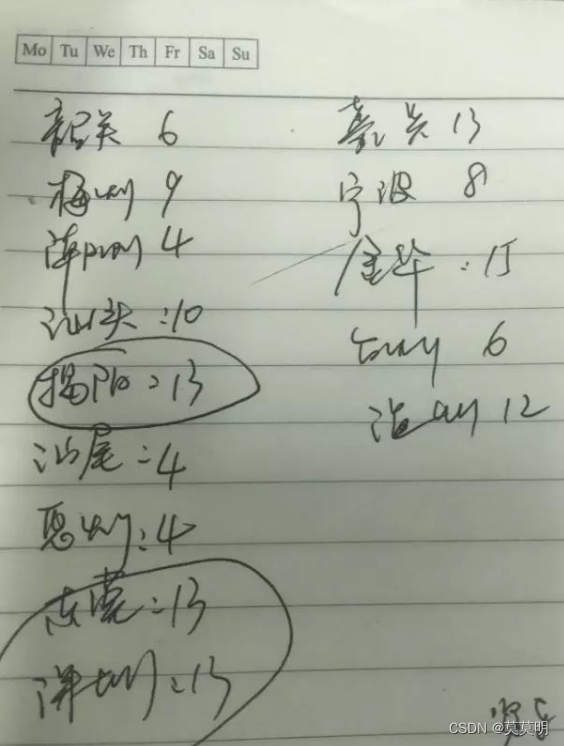 Mo Tu We Th Fr Sa Su
韶关 6
梅州 9
潮州 4
汕头:10
揭阳:13
汕尾:4
惠州:4
东莞:13
深圳:13
韶关 13
宁波 8
金华:15
台州 6
温州 12
CSDN @莫莫明